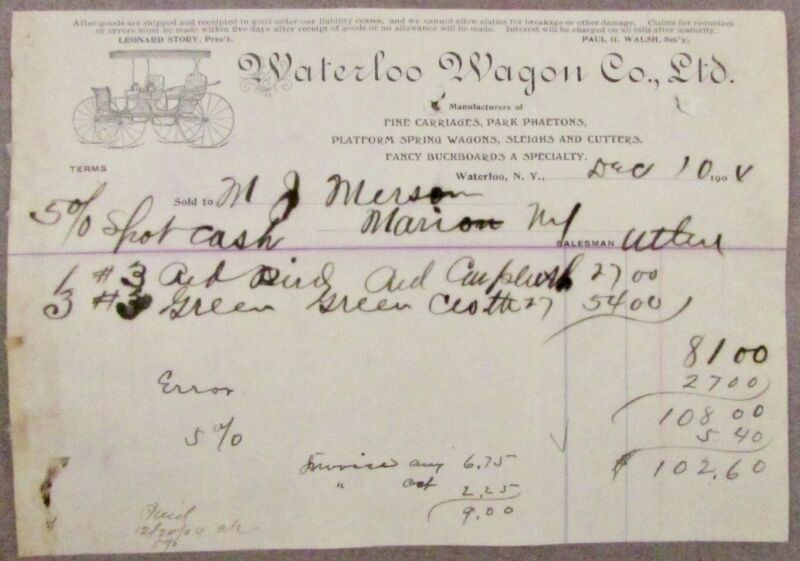 After goods are shipped and receipted in good order our liability ceases, and we cannot allow claims for breakage or other damage. Claims for reduction
or errors must be made within five days after receipt of goods or no allowance will be made. Interest will be charged on all bills after maturity.
LEONARD STORY, Pres't. PAUL G. WALSH, Sec'y.
Waterloo Wagon Co., Ltd.
Manufacturers of
FINE CARRIAGES, PARK PHAETONS,
PLATFORM SPRING WAGONS, SLEIGHS AND CUTTERS.
FANCY BUCKBOARDS A SPECIALTY.
TERMS
Waterloo, N. Y., Dec 10 1904
Sold to M J Merson
5% Spot cash
Marion NY
SALESMAN
1 #3 Red Bird Red 27 00
3 #3 Green Green Cloth 27 54 00
81 00
Error 27 00
108 00
5% 5 40
$ 102.60
Invoice aug 6.75
" oct 2.25
9.00
Paid
12/20/04 ck
596